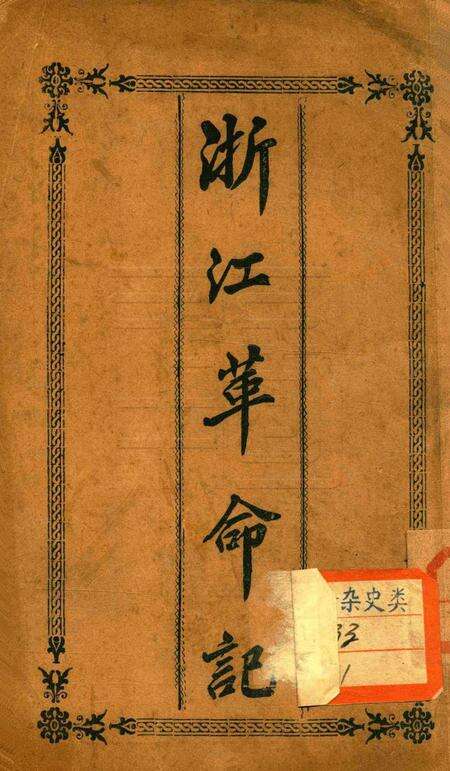 浙江革命記
杂史类
33
1